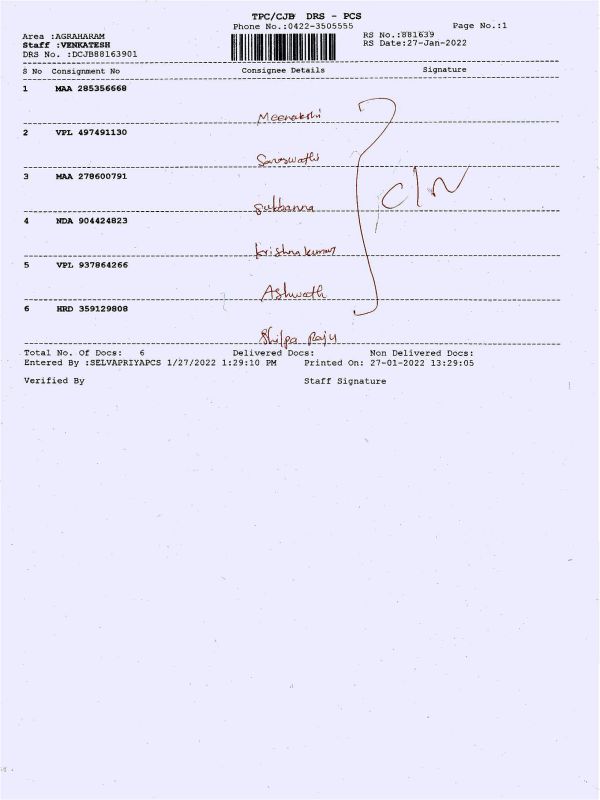 TPC/CJB DRS - PCS
Phone No.:0422-3505555 Page No.:1
Area :AGRAHARAM RS No.:881639
Staff :VENKATESH RS Date:27-Jan-2022
DRS No. :DCJB88163901
S No Consignment No Consignee Details Signature
1 MAA 285356668
Meenakshi
2 VPL 497491130
Saraswathi
3 MAA 278600791
Subbanna
4 NDA 904424823
krishna kumar
5 VPL 937864266
Ashwath
6 HRD 359129808
Shilpa Raju
C/N
Total No. Of Docs: 6 Delivered Docs: Non Delivered Docs:
Entered By :SELVAPRIYAPCS 1/27/2022 1:29:10 PM Printed On: 27-01-2022 13:29:05
Verified By Staff Signature